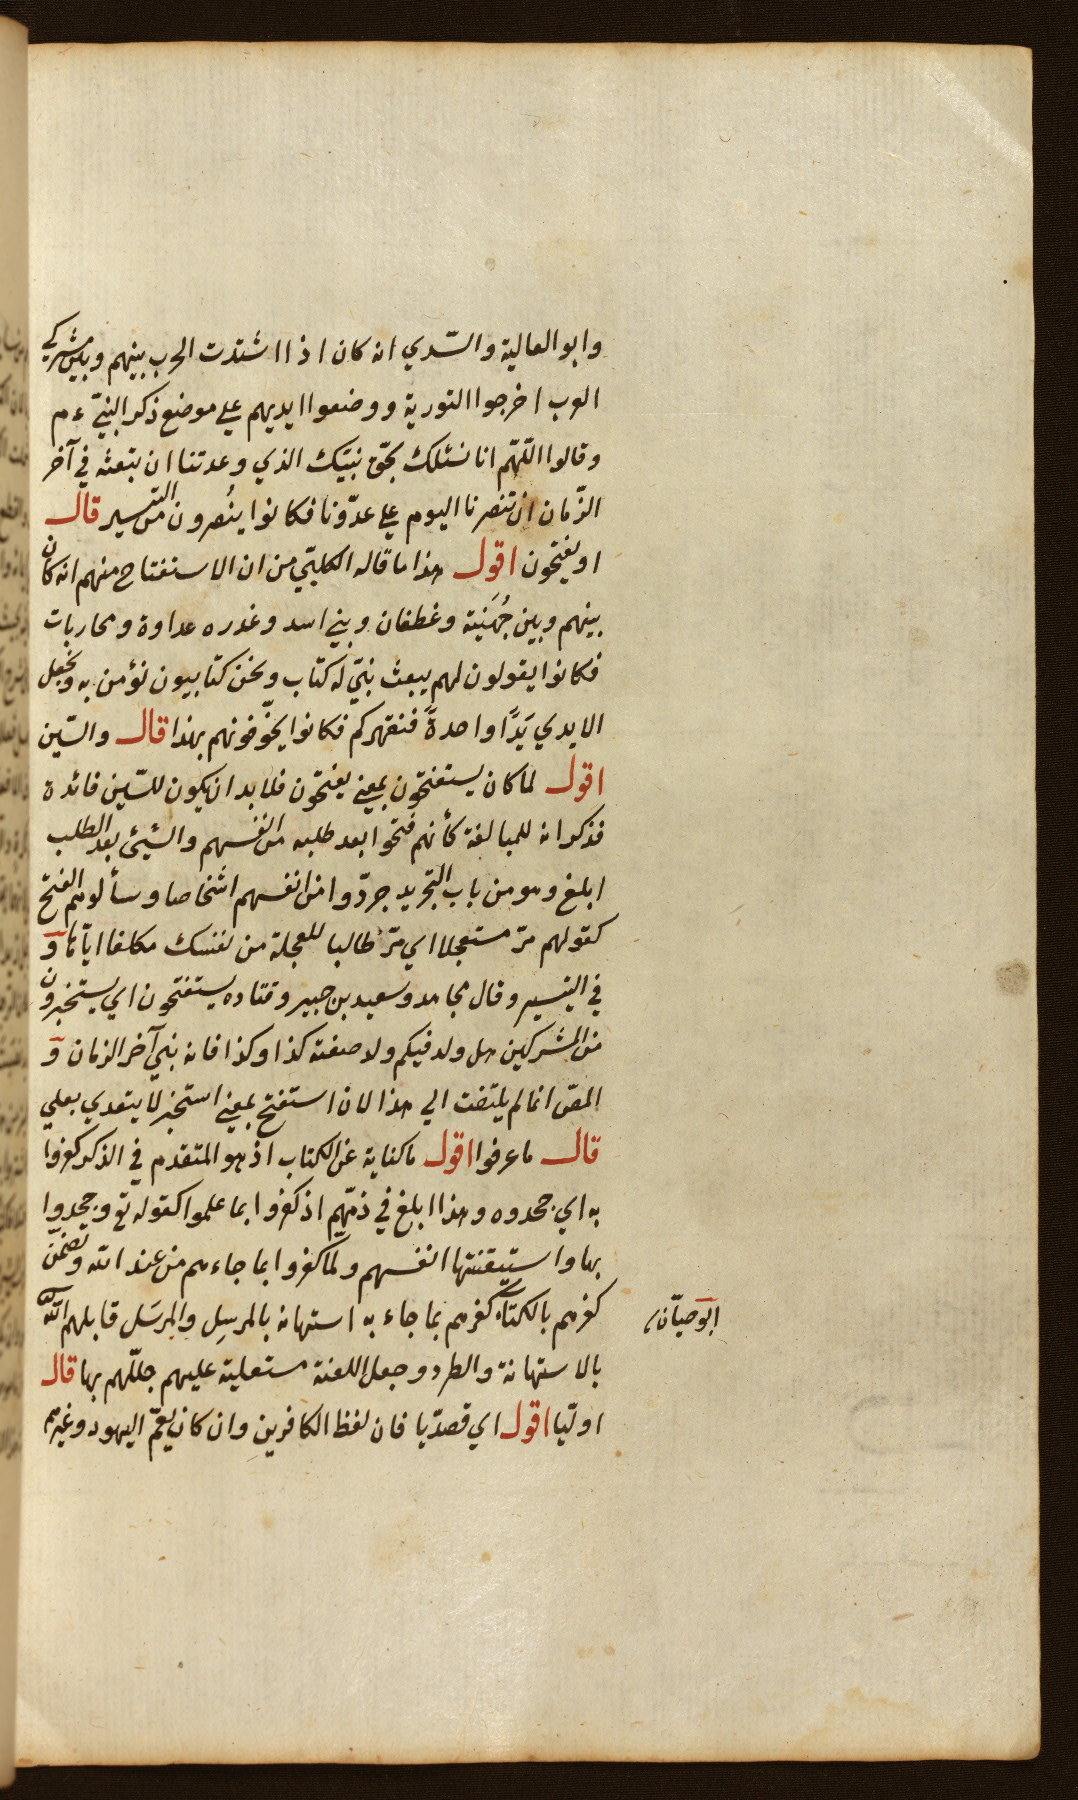 وابو العالية والسّدي انه كان اذا اشتدت الحرب بينهم وبين مشركي
العرب اخرجوا التورية ووضعوا ايديهم على موضع ذكر النبيّ ءم
وقالوا اللّهمّ انا نسئلك بحقّ نبيّك الذي وعدتنا ان تبعثه في آخر
الزّمان ان تنصرنا اليوم على عدّونا فكانوا يُنصرون من التيسير قال
او يفتحون اقول هذا ما قاله الكلبّي من ان الاستفتاح منهم انه كان
بينهم وبين جُهَنية وغطفان وبني اسد وعذره عداوة ومحاربات
فكانوا يقولون لهم يبعث نبيّ له كتاب ونحن كتابيون نؤمن به ونجعل
الايدي يَدًا واحدةً فنقهركم فكانوا يخوّفونهم بهذا قال والسّين
اقول لما كان يستفتحون بمعنى يفتحون فلا بد ان يكون للسّين فائدة
فذكر انه للمبالغة كأنهم فتحوا بعد طلبه من انفسهم والشيئ بعد الطلب
ابلغ وهو من باب التجريد جرّدوا من انفسهم اشخاصا وسألوهم الفتح
كقولهم مرّ مستعجلا اي مرّ طالبا للعجلة من نفسك مكلفا ايّاها و
في التيسير وقال مجاهد وسعيد بن جبير وقتاده يستفتحون اي يستخبرون
من المشركين هل ولد فيكم ولد صفته كذا وكذا فانه نبي آخر الزمان و
المص انما لم يلتفت الى هذا لان استفتح بمعنى استخبر لا يتعدي بعلي
قال ما عرفوا اقول ما كناية عن الكتاب اذ هو المتقدم في الذكر كفروا
به اي جحدوه وهذا ابلغ في ذمّهم اذ كفروا بما علموا كقوله تع وجحدوا
بها واستيقنتها انفسهم ولمّا كفروا بما جاءهم من عند الله وتضمّن
كفرهم بالكتاب كفرهم بما جاء به استهانة بالمرسِل والمرسَل قابلهم الله
بالاستهانة والطرد وجعل اللعنة مستعلية عليهم جللّهم بها قال
اوليّا اقول اي قصدّيا فان لفظ الكافرين وان كان يعمّ اليهود وغيرهم
ابو حيّان